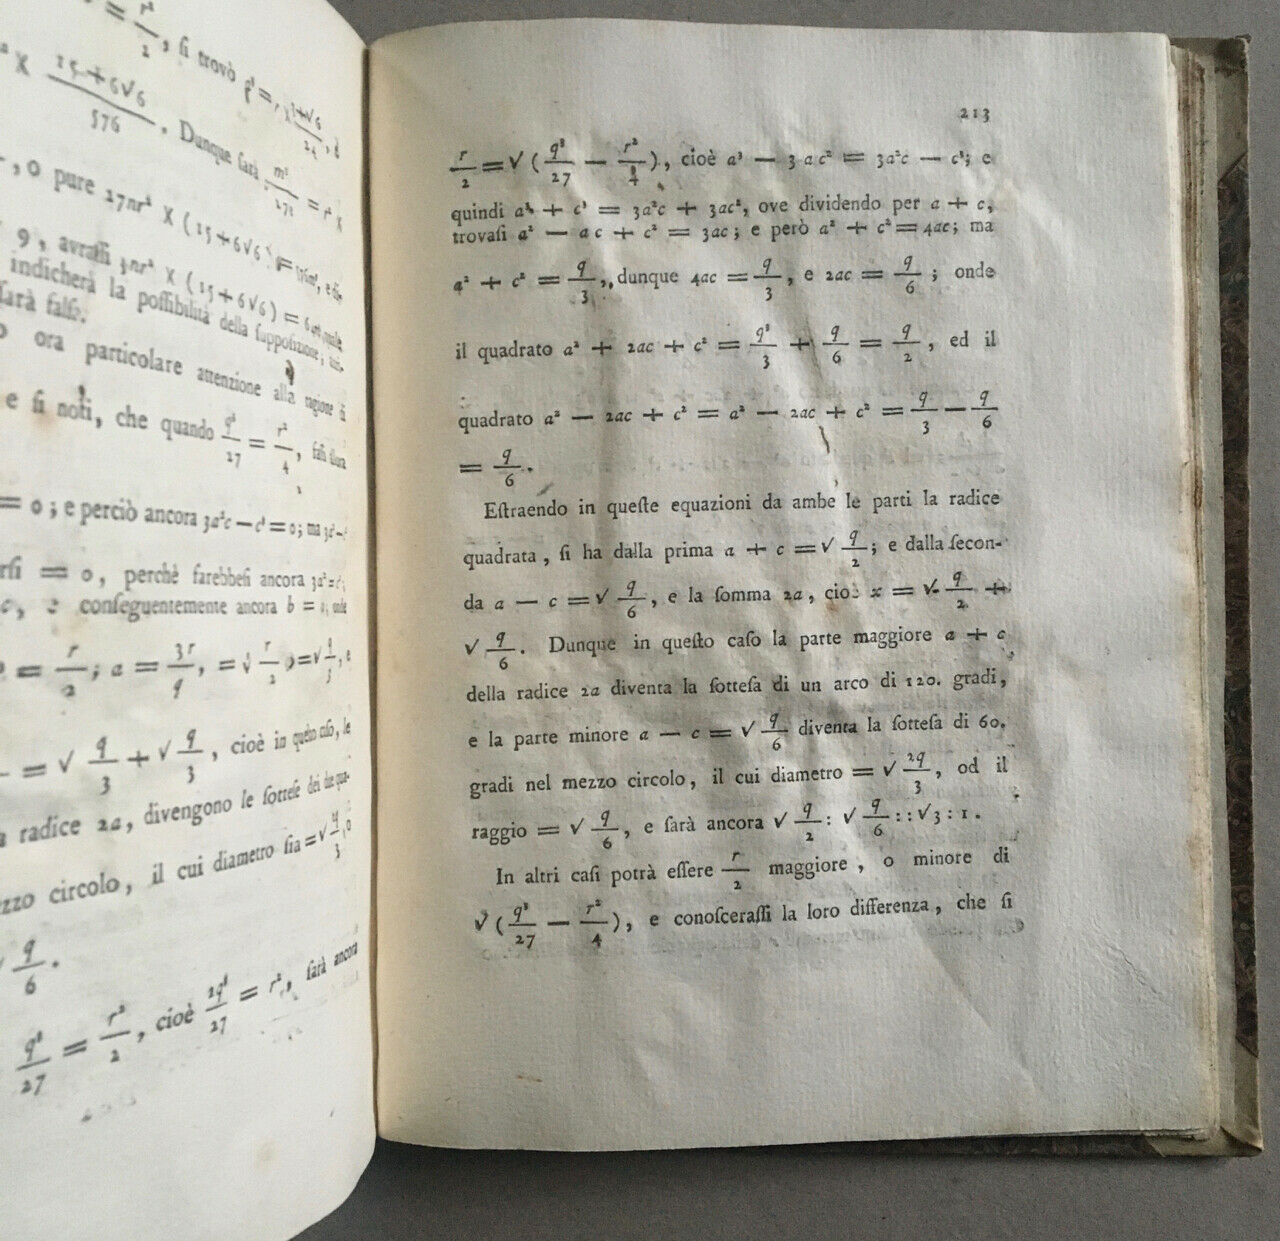 r²/2, ſi trovò
15+6√6/576. Dunque ſarà m²
, o pure 27nr² × (15+6√6
9, avraſſi 3nr² × (15+6√6) =
indicherà la poſſibilità della ſuppoſizione;
ſarà falſo.
ora particolare attenzione alla ragione di
e ſi noti, che quando q³/27 = r²/4,
= 0; e perciò ancora 3a²c — c³ = 0; ma
rſi = 0, perchè farebbeſi ancora
c, e conſeguentemente ancora b =
= r/2; a = 3r/q, =
= √ q/3 + √ q/3, cioè in queſto caſo, le
radice 2a, divengono le ſotteſe dei due
zzo circolo, il cui diametro ſia = √ q/3, o
√ q/6.
q³/27 = r²/2, cioè 2q³/27 = r², ſarà ancora
213
r/2 = √ (q³/27 — r²/4), cioè a³ — 3 ac² = 3a²c — c³; e
quindi a³ + c³ = 3a²c + 3ac², ove dividendo per a + c,
trovaſi a² — ac + c² = 3ac; e però a² + c² = 4ac; ma
a² + c² = q/3, dunque 4ac = q/3, e 2ac = q/6; onde
il quadrato a² + 2ac + c² = q³/3 + q/6 = q/2, ed il
quadrato a² — 2ac + c² = a² — 2ac + c² = q/3 — q/6
= q/6.
Eſtraendo in queſte equazioni da ambe le parti la radice
quadrata, ſi ha dalla prima a + c = √ q/2; e dalla ſecon-
da a — c = √ q/6, e la ſomma 2a, cioè x = √ q/2 +
√ q/6. Dunque in queſto caſo la parte maggiore a + c
della radice 2a diventa la ſotteſa di un arco di 120. gradi,
e la parte minore a — c = √ q/6 diventa la ſotteſa di 60.
gradi nel mezzo circolo, il cui diametro = √ 2q/3, od il
raggio = √ q/6, e ſarà ancora √ q/2 : √ q/6 : : √3 : 1.
In altri caſi potrà eſſere r/2 maggiore, o minore di
√ (q³/27 — r²/4), e conoſceraſſi la loro differenza, che ſi